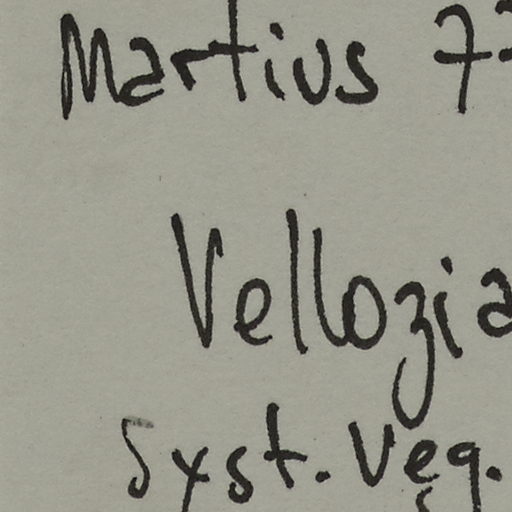 Martius 7
Vellozia
Syst. Veg.